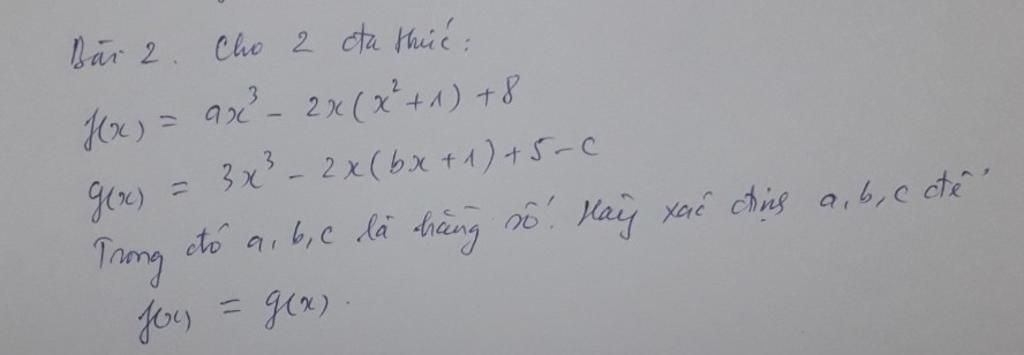 Bài 2. Cho 2 đa thức:
f(x) = ax³ - 2x(x²+1) +8
g(x) = 3x³ - 2x(bx+1)+5-c
Trong đó a, b, c là hằng số. Hãy xác định a, b, c để
f(x) = g(x).